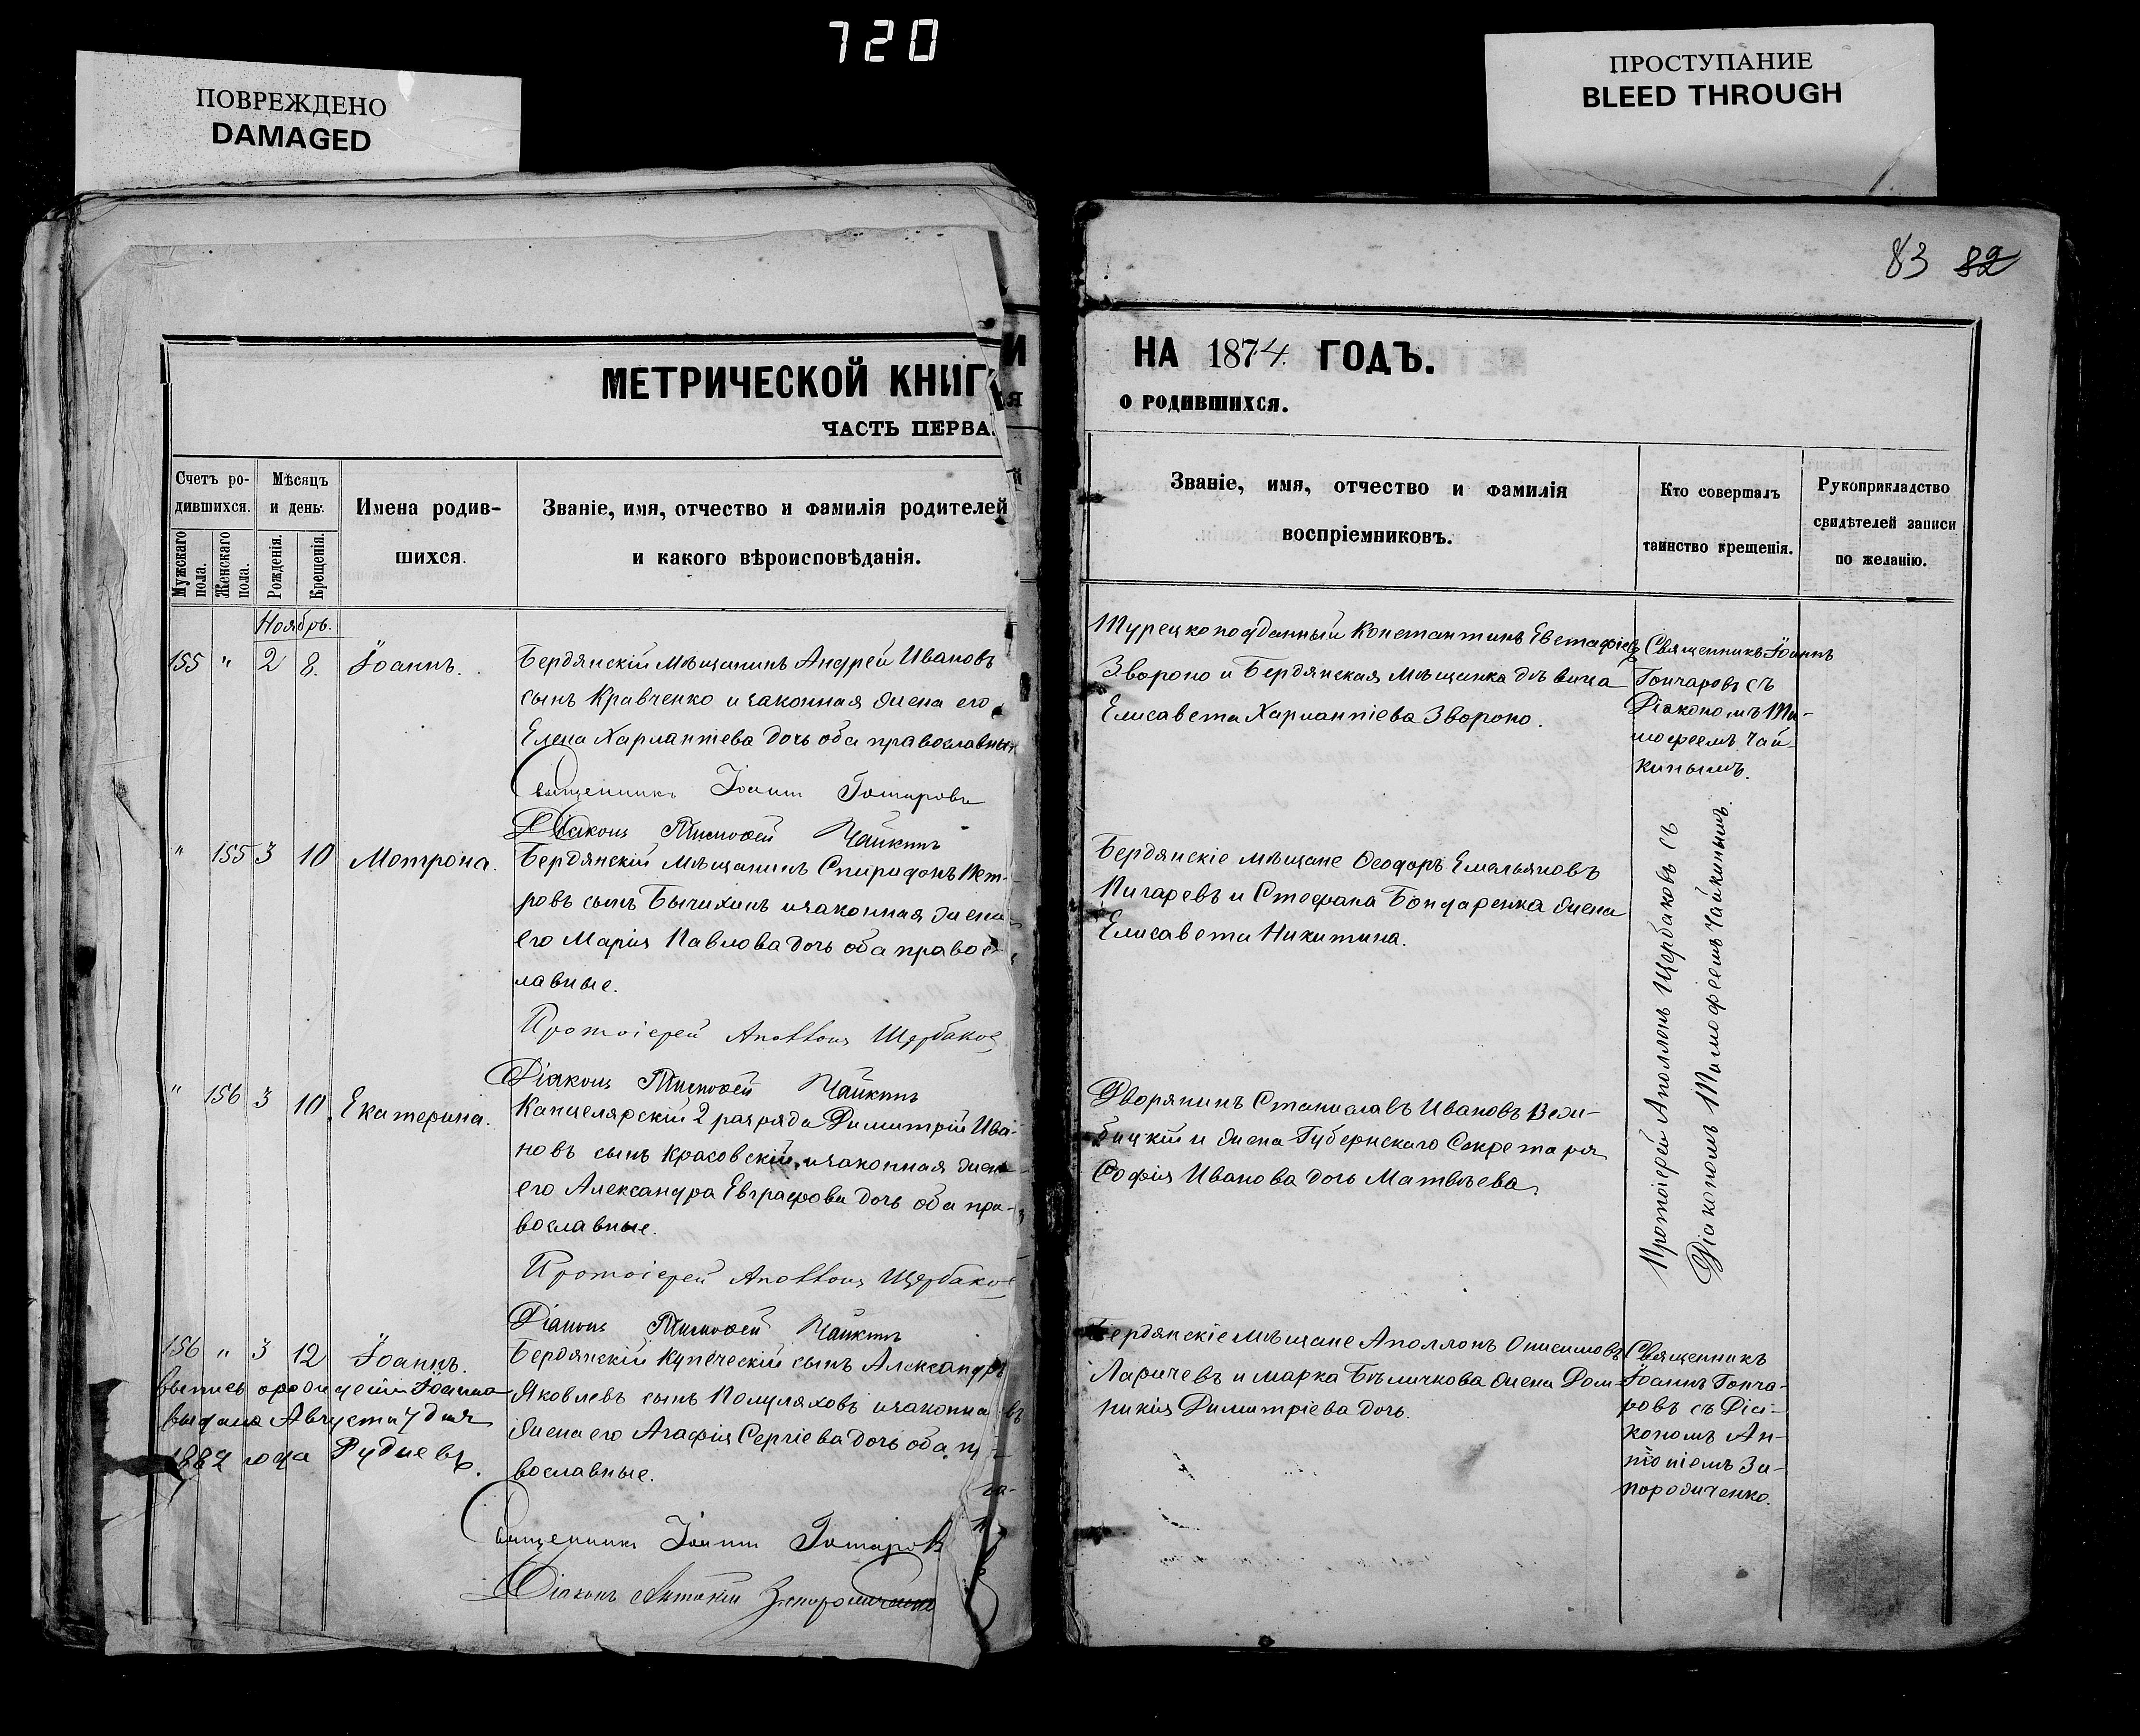 720
ПОВРЕЖДЕНО
DAMAGED
ПРОСТУПАНИЕ
BLEED THROUGH
83 82
МЕТРИЧЕСКОЙ КНИГИ
ЧАСТЬ ПЕРВАЯ
Счетъ ро-
дившихся.
Мѣсяцъ
и день.
Имена родив-
шихся.
Званіе, имя, отчество и фамилія родителей
и какого вѣроисповѣданія.
Мужскаго пола.
Женскаго пола.
Рожденія.
Крещенія.
Ноябрь.
155 " 2 8. Іоаннъ.
Бердянскій Мѣщанинъ Андрей Ивановъ
сынъ Кравченко и законная жена его
Елена Харлампіева дочь оба православные
Священникъ Іоаннъ Гончаровъ
Діаконъ Тимоѳей Чайкинъ
" 155 3 10 Мотрона.
Бердянскій Мѣщанинъ Спиридонъ Пет-
ровъ сынъ Бычихинъ и законная жена
его Марія Павлова дочь оба правос-
лавные.
Протоіерей Аполлонъ Щербаковъ
Діаконъ Тимоѳей Чайкинъ
" 156 3 10 Екатерина.
Канцелярскій 2 разряда Димитрій Ива-
новъ сынъ Красовскій, и законная жена
его Александра Евграфова дочь оба пра-
вославные.
Протоіерей Аполлонъ Щербаковъ
Діаконъ Тимоѳей Чайкинъ
156 " 3 12 Іоаннъ.
Выпись о рожденіи Іоанна
выдана Августа 7 дня
1882 года Рудневъ.
Бердянскій Купеческій сынъ Александръ
Яковлевъ сынъ Полуляховъ и законна
жена его Агафія Сергіева дочь оба п
вославные.
Священникъ Іоаннъ Гончаровъ
Діаконъ Антоній Запорожченко
НА 1874 ГОДЪ.
О РОДИВШИХСЯ.
Званіе, имя, отчество и фамилія
воспріемниковъ.
Кто совершалъ
таинство крещенія.
Рукоприкладство
свидѣтелей записи
по желанію.
Турецкоподданный Константинъ Евстафіевъ
Звороно и Бердянская Мѣщанка дѣвица
Елисавета Харлампіева Звороно.
Священникъ Іоаннъ
Гончаровъ съ
Діакономъ Ти-
мофеемъ Чай-
кинымъ.
Бердянскіе мѣщане Ѳеодоръ Емельяновъ
Пигаревъ и Стефана Бондаренка жена
Елисавета Никитина.
Протоіерей Аполлонъ Щербаковъ съ
Діакономъ Тимофеемъ Чайкинымъ.
Дворянинъ Станиславъ Ивановъ Вели-
бицкій и жена Губернскаго Секретаря
Софія Иванова дочь Матвѣева.
Бердянскіе мѣщане Аполлонъ Онисимовъ
Ларичевъ и Марка Бѣличкова жена Дом-
никія Димитріева дочь.
Священникъ
Іоаннъ Гонча-
ровъ съ Діа-
кономъ Ан-
тоніемъ За-
порожченко.